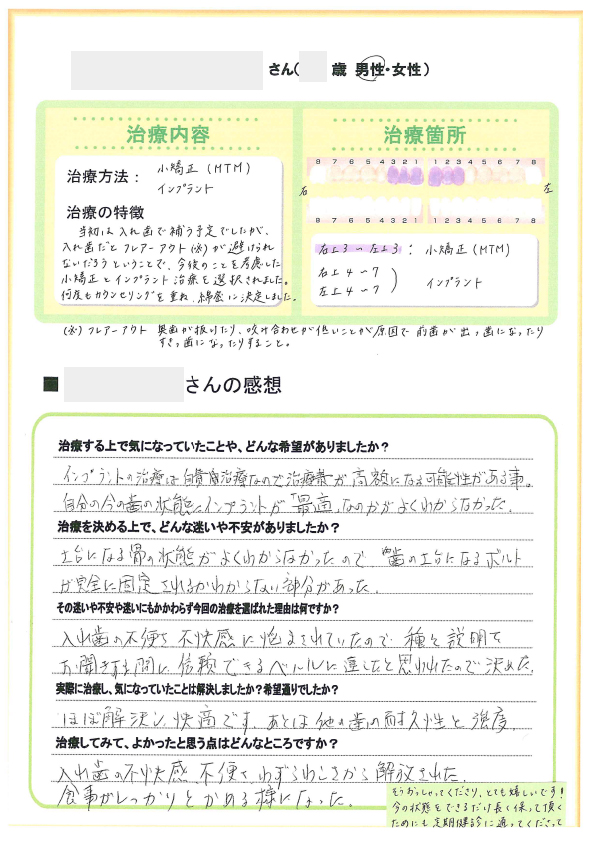 さん( 歳 男性・女性)
治療内容
治療方法： 小矯正（MTM）
インプラント
治療の特徴
当初は入れ歯で補う予定でしたが、
入れ歯だと フレアーアウト(※)が避けられ
ないだろうということで、今後のことを考慮した
小矯正とインプラント治療を選択されました。
何度もカウンセリングを重ね、綿密に決定しました。
治療箇所
8 7 6 5 4 3 2 1 1 2 3 4 5 6 7 8
右 左
右上3 〜 左上3 ： 小矯正（MTM）
右上4〜7
左上4〜7 ） インプラント
(※) フレアーアウト 奥歯が抜けたり、咬み合わせが低いことが原因で前歯が出っ歯になったり
すきっ歯になったりすること。
■ さんの感想
治療する上で気になっていたことや、どんな希望がありましたか？
インプラントの治療は自費治療なので治療費が高額になる可能性がある事。
自分の今の歯の状態にインプラントが「最適」なのかがよくわからなかった。
治療を決める上で、どんな迷いや不安がありましたか？
土台になる骨の状態がよくわからなかったので 歯の土台になるボルト
が完全に固定されるかわからない部分があった。
その迷いや不安や迷いにもかかわらず今回の治療を選ばれた理由は何ですか？
入れ歯の不便さ 不快感に悩まされていたので 種々説明を
お聞きする間に 信頼できるベルルに達したと思われたので決めた。
実際に治療し、気になっていたことは解決しましたか？希望通りでしたか？
ほぼ解決し 快適です。あとは他の歯の耐久性と強度。
治療してみて、よかったと思う点はどんなところですか？
入れ歯の不快感、不便さ、わずらわしさから解放された。
食事がしっかりとかめる様になった。
そうおっしゃってくださり、とても嬉しいです！
今の状態をできるだけ長く保って頂く
ためにも定期健診に通ってくださって